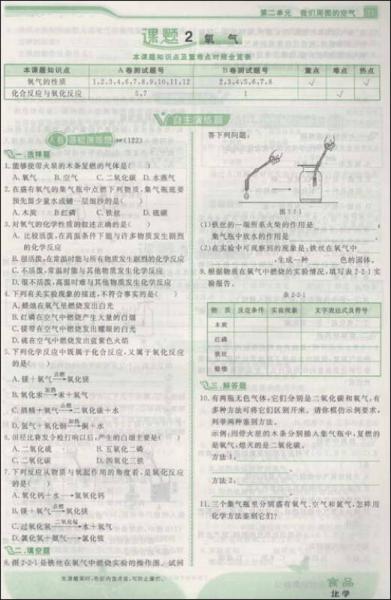 第二单元 我们周围的空气
课题2 氧气
本课题知识点及重难点对照全览表
本课题知识点 A卷测试题号 B卷测试题号 重点 难点 热点
氧气的性质 1、2、3、4、6、7、8、9、10、11、12 2、3、4、5、6、7、8 √ √
化合反应与氧化反应 5、7 1 √
自主演练篇
A卷 基础演练题
一、选择题
1.能够使带火星的木条复燃的气体是( )
A.氧气 B.空气 C.二氧化碳 D.水蒸气
2.在盛有氧气的集气瓶中点燃下列物质,集气瓶底要
预先留少量水或铺一层细沙的是( )
A.木炭 B.红磷 C.铁丝 D.硫磺
3.对氧气的化学性质的叙述正确的是( )
A.比较活泼,在高温条件下能与许多物质发生剧烈
的化学反应
B.很活泼,在常温时能与所有物质发生剧烈的化学反应
C.不活泼,常温时能与其他物质发生化学反应
D.很不活泼,高温时难与其他物质发生化学反应
4.下列有关实验现象的描述,不符合事实的是( )
A.蜡烛在氧气里燃烧发出白光
B.红磷在空气中燃烧产生大量的白烟
C.镁带在空气中燃烧发出耀眼的白光
D.硫在空气中燃烧发出蓝紫色火焰
5.下列化学反应中既属于化合反应,又属于氧化反应
的是( )
A.镁+氧气 点燃→ 氧化镁
B.氧化汞 加热→ 汞+氧气
C.酒精+氧气 点燃→ 二氧化碳+水
D.氢气+氧化铜 加热→ 铜+水
6.田径比赛发令枪打响以后,产生的白烟主要是( )
A.二氧化硫 B.五氧化二磷
C.二氧化碳 D.二氧化锰
7.下列反应从物质与氧起作用的角度看,是氧化反应
的是( )
A.氧化钙+水→氢氧化钙
B.镁+氧气 点燃→ 氧化镁
C.过氧化氢 二氧化锰→ 水+氧气
二、填空题
8.图2-2-1是铁丝在氧气中燃烧实验的操作图。试回
答下列问题:
图 2-2-1
(1)铁丝的一端所系火柴的作用是
集气瓶中放水的作用是
(2)在此实验中可观察到的现象是:铁丝在氧气中
,生成一种 色的固体。
9.根据物质在氧气中燃烧的实验情况,填写表2-2-1实
验报告。
表2-2-1
物质 反应条件 实验现象 文字表达式及符号
木炭
红磷
铁丝
蜡烛
三、解答题
10.有两瓶无色气体,它们分别是二氧化碳和氧气,有
多种方法可将它们区别开来。请你根据示例要求,
列举两种鉴别方法。
示例:用带火星的木条分别插入集气瓶中,复燃的
是氧气,熄灭的是二氧化碳。
方法一:
方法二:
11.三个集气瓶里分别盛有氧气、空气和氮气,怎样用
化学方法鉴别它们?
化学